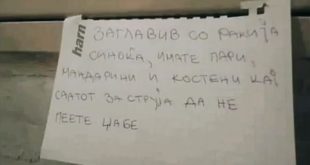 ЗАГЛАВИВ СО РАКИЈА
СИНОЌА, ИМАТЕ ПАРИ,
МАНДАРИНИ И КОСТЕНИ КАЈ
СААТОТ ЗА СТРУЈА ДА НЕ
ПЕЕТЕ ЏАБЕ